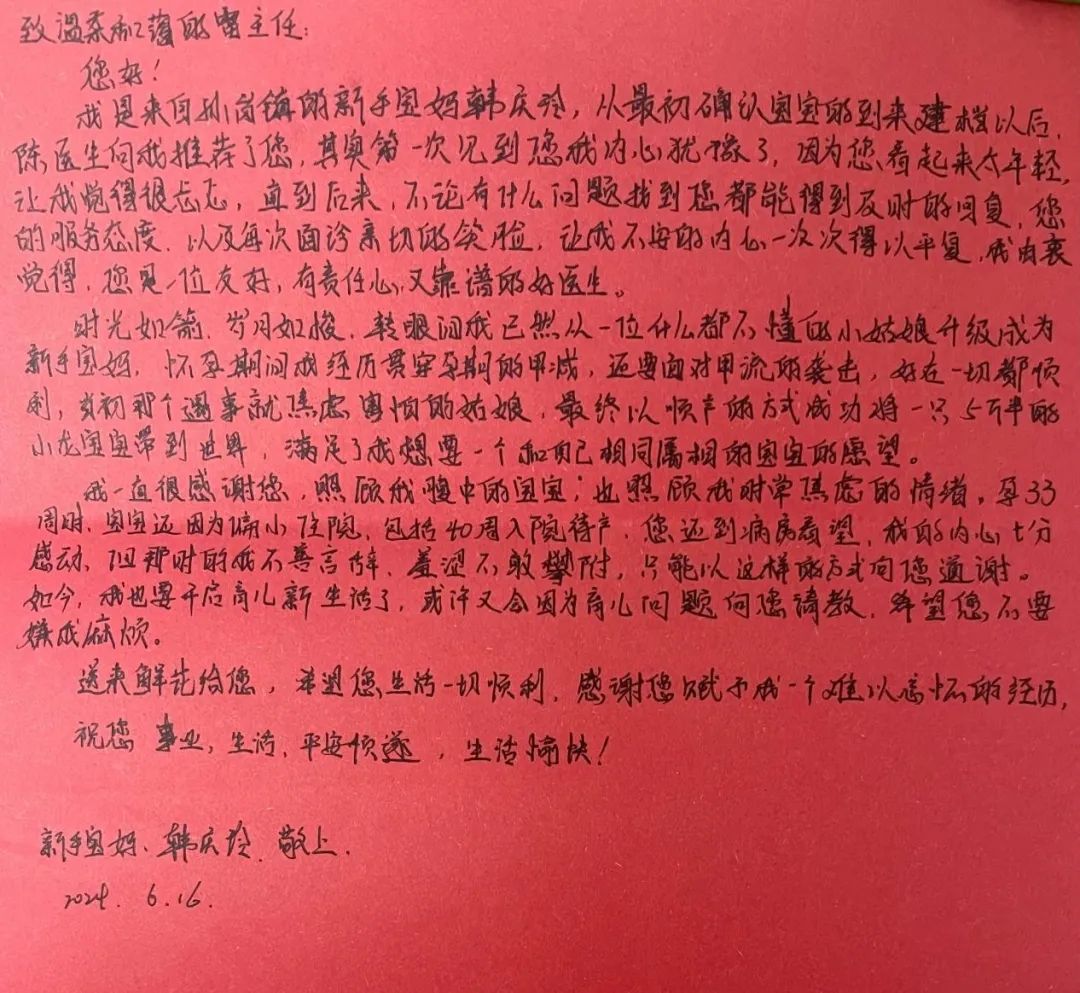 致温柔和蔼的雷主任:
您好!
我是来自孙岗镇的新手宝妈韩庆玲，从最初确认宝宝的到来建档以后，
陈医生向我推荐了您，其奥第一次见到您我内心犹豫了，因为您看起来太年轻，
让我觉得很忐忑，直到后来，不论有什么问题找到您都能得到及时的回复，您
的服务态度，以及每次面诊亲切的笑脸，让我不安的内心一次次得以平复，我由衷
觉得，您是一位友好，有责任心，又靠谱的好医生。
时光如箭，岁月如梭，转眼间我已然从一位什么都不懂的小姑娘升级成为
新手宝妈，怀孕期间我经历贯穿孕期的甲减，还要面对甲流的袭击，好在一切都顺
利，当初那个遇事就焦虑害怕的姑娘，最终以顺产的方式成功将一只5斤半的
小龙宝宝带到世界，满足了我想要一个和自己相同属相的宝宝的愿望。
我一直很感谢您，照顾我腹中的宝宝；也照顾我时常焦虑的情绪。孕33
周时，宝宝还因为偏小住院，包括40周入院待产，您还到病房看望，我的内心十分
感动，但那时的我不善言辞，羞涩不敢攀附，只能以这样的方式向您道谢。
如今，我也要开启育儿新生活了，或许又会因为育儿问题向您请教，希望您不要
嫌我麻烦。
送来鲜花给您，希望您生活一切顺利，感谢您赋予我一个难以忘怀的经历，
祝您 事业，生活，平安顺遂，生活愉快!
新手宝妈、韩庆玲 敬上.
2024. 6.16.